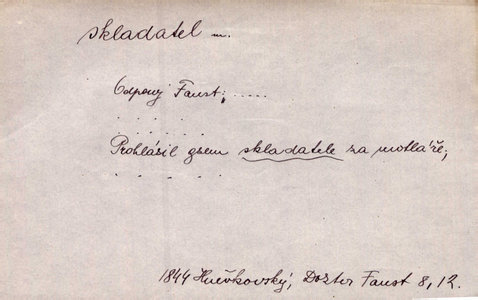 skladatel m.
Odpověj Faust; .....
. . . . .
Prohlásil gsem skladatele za motláře;
. . . . .
1844 Hněvkovský, Doktor Faust 8, 12.